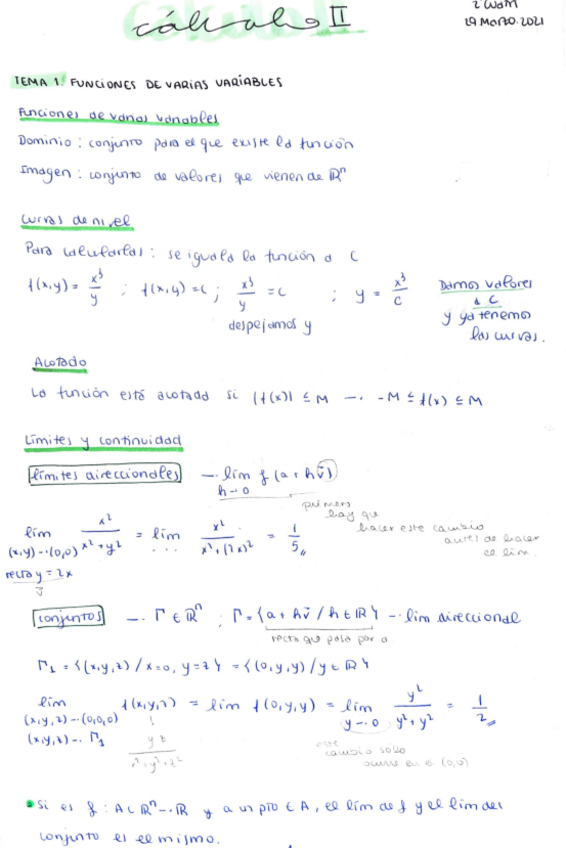 cálculo II
2º WDM
29 Marzo. 2021
TEMA 1. FUNCIONES DE VARIAS VARIABLES
Funciones de varias variables
Dominio : conjunto para el que existe la función
Imagen : conjunto de valores que vienen de ℝⁿ
Curvas de nivel
Para calcularlas : se iguala la función a C
f(x,y) = x³/y ; f(x,y) = c ; x³/y = c ; y = x³/c
despejamos y
Damos valores
a C
y ya tenemos
las curvas.
Acotado
La función está acotada si |f(x)| ≤ M → -M ≤ f(x) ≤ M
Límites y continuidad
límites direccionales → lím f (a + h v̄)
h→0
primero
hay que
hacer este cambio
antes de hacer
el lím.
lím x²/(x²+y²) = lím x²/(x²+(2x)²) = 1/5
(x,y)→(0,0) ...
recta y = 2x
conjuntos → Γ ∈ ℝⁿ ; Γ = {a + h v̄ / h ∈ ℝ} → lim direccional
recta que pasa por a
Γ₁ = {(x,y,z) / x=0, y=z} = {(0,y,y) / y ∈ ℝ}
lím f(x,y,z) = lím f(0,y,y) = lím y²/(y²+y²) = 1/2
(x,y,z)→(0,0,0) y→0
(x,y,z)→Γ₁ yz/(x²+y²+z²)
este
cambio solo
ocurre en el (0,0)
• Si es f : A ⊂ ℝⁿ → ℝ y a un pto ∈ A, el lím de f y el lim del
conjunto es el mismo.